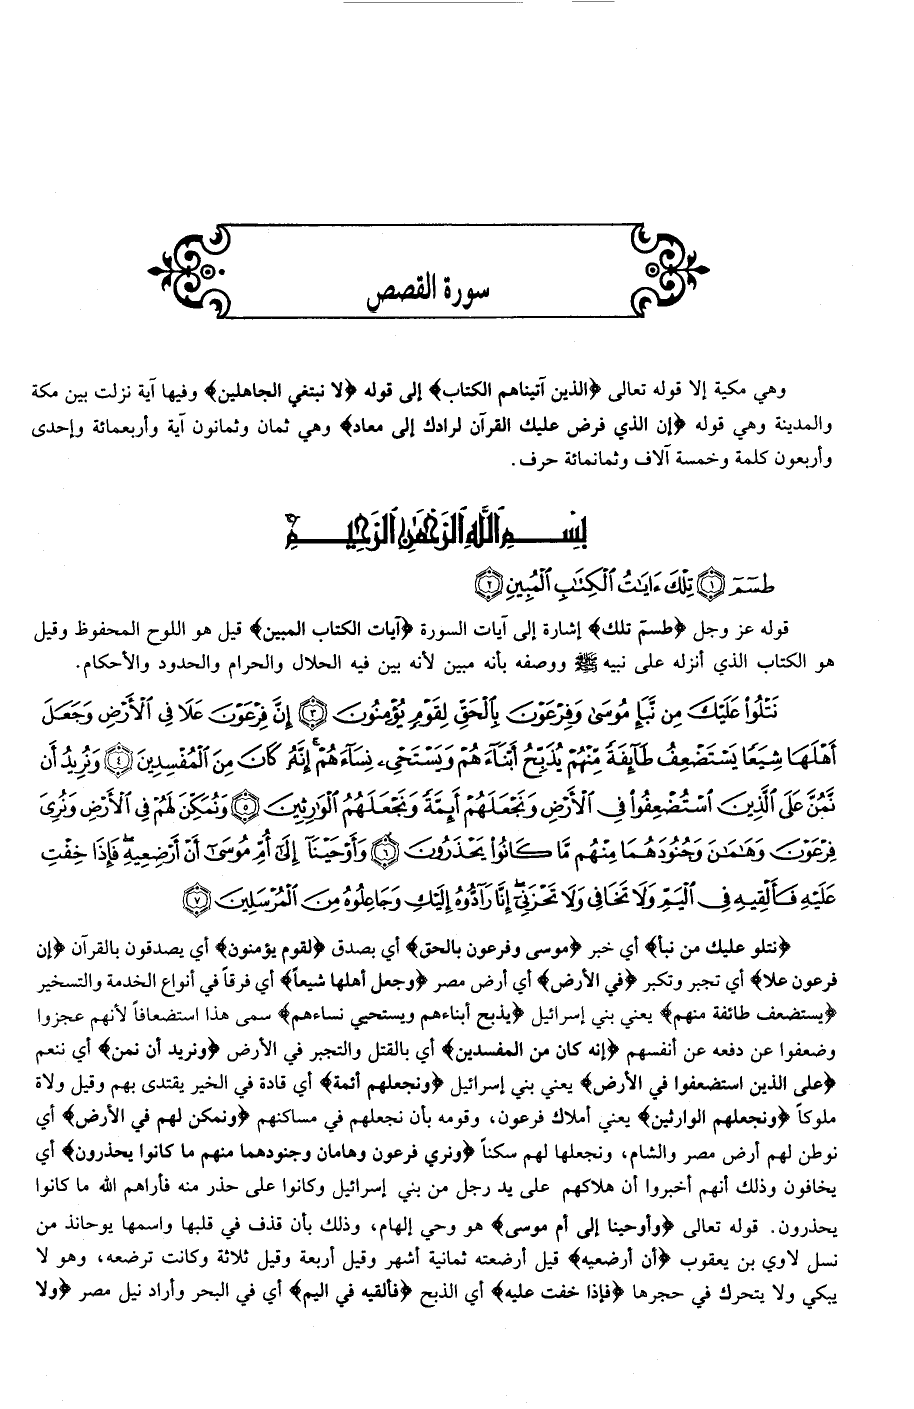 سورة القصص
وهي مكية إلا قوله تعالى ﴿الذين آتيناهم الكتاب﴾ إلى قوله ﴿لا نبتغي الجاهلين﴾ وفيها آية نزلت بين مكة
والمدينة وهي قوله ﴿إن الذي فرض عليك القرآن لرادك إلى معاد﴾ وهي ثمان وثمانون آية وأربعمائة وإحدى
وأربعون كلمة وخمسة آلاف وثمانمائة حرف.
بِسْمِ اللَّهِ الرَّحْمَٰنِ الرَّحِيمِ
طسٓمٓ ﴿١﴾ تِلْكَ ءَايَٰتُ ٱلْكِتَٰبِ ٱلْمُبِينِ ﴿٢﴾
قوله عز وجل ﴿طسمٓ تلك﴾ إشارة إلى آيات السورة ﴿آيات الكتاب المبين﴾ قيل هو اللوح المحفوظ وقيل
هو الكتاب الذي أنزله على نبيه ﷺ ووصفه بأنه مبين لأنه بين فيه الحلال والحرام والحدود والأحكام.
نَتْلُوا۟ عَلَيْكَ مِن نَّبَإِ مُوسَىٰ وَفِرْعَوْنَ بِٱلْحَقِّ لِقَوْمٍ يُؤْمِنُونَ ﴿٣﴾ إِنَّ فِرْعَوْنَ عَلَا فِى ٱلْأَرْضِ وَجَعَلَ
أَهْلَهَا شِيَعًا يَسْتَضْعِفُ طَآئِفَةً مِّنْهُمْ يُذَبِّحُ أَبْنَآءَهُمْ وَيَسْتَحْىِۦ نِسَآءَهُمْ ۚ إِنَّهُۥ كَانَ مِنَ ٱلْمُفْسِدِينَ ﴿٤﴾ وَنُرِيدُ أَن
نَّمُنَّ عَلَى ٱلَّذِينَ ٱسْتُضْعِفُوا۟ فِى ٱلْأَرْضِ وَنَجْعَلَهُمْ أَئِمَّةً وَنَجْعَلَهُمُ ٱلْوَٰرِثِينَ ﴿٥﴾ وَنُمَكِّنَ لَهُمْ فِى ٱلْأَرْضِ وَنُرِىَ
فِرْعَوْنَ وَهَٰمَٰنَ وَجُنُودَهُمَا مِنْهُم مَّا كَانُوا۟ يَحْذَرُونَ ﴿٦﴾ وَأَوْحَيْنَآ إِلَىٰٓ أُمِّ مُوسَىٰٓ أَنْ أَرْضِعِيهِ ۖ فَإِذَا خِفْتِ
عَلَيْهِ فَأَلْقِيهِ فِى ٱلْيَمِّ وَلَا تَخَافِى وَلَا تَحْزَنِىٓ ۖ إِنَّا رَآدُّوهُ إِلَيْكِ وَجَاعِلُوهُ مِنَ ٱلْمُرْسَلِينَ ﴿٧﴾
﴿نتلو عليك من نبأ﴾ أي خبر ﴿موسى وفرعون بالحق﴾ أي بصدق ﴿لقوم يؤمنون﴾ أي يصدقون بالقرآن ﴿إن
فرعون علا﴾ أي تجبر وتكبر ﴿في الأرض﴾ أي أرض مصر ﴿وجعل أهلها شيعاً﴾ أي فرقاً في أنواع الخدمة والتسخير
﴿يستضعف طائفة منهم﴾ يعني بني إسرائيل ﴿يذبح أبناءهم ويستحيي نساءهم﴾ سمى هذا استضعافاً لأنهم عجزوا
وضعفوا عن دفعه عن أنفسهم ﴿إنه كان من المفسدين﴾ أي بالقتل والتجبر في الأرض ﴿ونريد أن نمن﴾ أي ننعم
﴿على الذين استضعفوا في الأرض﴾ يعني بني إسرائيل ﴿ونجعلهم أئمة﴾ أي قادة في الخير يقتدى بهم وقيل ولاة
ملوكاً ﴿ونجعلهم الوارثين﴾ يعني أملاك فرعون، وقومه بأن نجعلهم في مساكنهم ﴿ونمكن لهم في الأرض﴾ أي
نوطن لهم أرض مصر والشام، ونجعلها لهم سكناً ﴿ونري فرعون وهامان وجنودهما منهم ما كانوا يحذرون﴾ أي
يخافون وذلك أنهم أخبروا أن هلاكهم على يد رجل من بني إسرائيل وكانوا على حذر منه فأراهم الله ما كانوا
يحذرون. قوله تعالى ﴿وأوحينا إلى أم موسى﴾ هو وحي إلهام، وذلك بأن قذف في قلبها واسمها يوحانذ من
نسل لاوي بن يعقوب ﴿أن أرضعيه﴾ قيل أرضعته ثمانية أشهر وقيل أربعة وقيل ثلاثة وكانت ترضعه، وهو لا
يبكي ولا يتحرك في حجرها ﴿فإذا خفت عليه﴾ أي الذبح ﴿فألقيه في اليم﴾ أي في البحر وأراد نيل مصر ﴿ولا